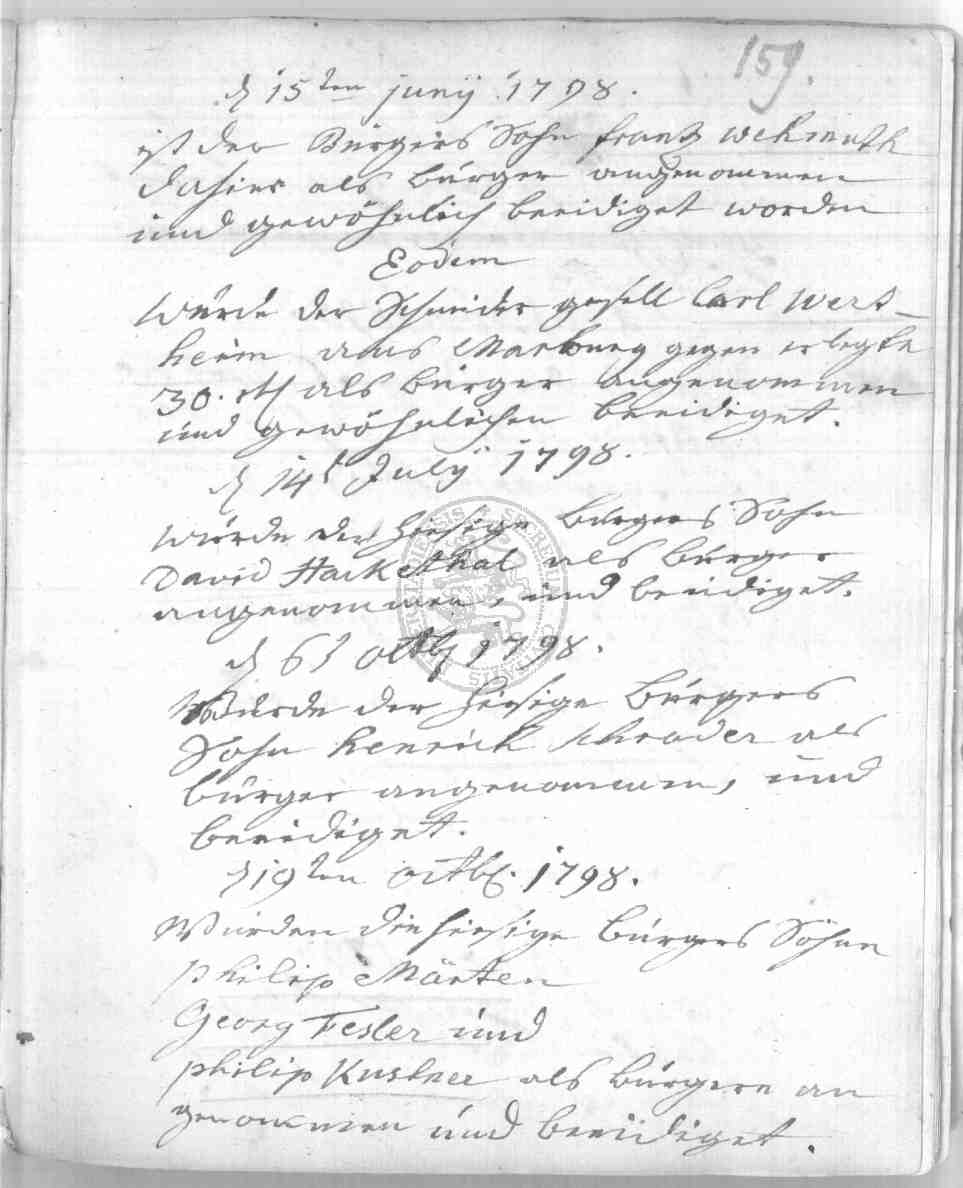 159.
d 15ten junÿ 1798.
ist der Bürgers Sohn frantz wehmuth
dahier als bürger angenommen
und gewöhnlich beeidiget worden
Eodem
würde der Schneider gesell Carl Wert-
heim aus Marburg gegen erlegte
30. rth als bürger angenommen
und gewöhnlichen beeidiget.
d 14t Julÿ 1798.
würde der hiesige bürgers Sohn
David Hackethal als bürger
angenommen, und beeidiget.
d 6t octbr 1798.
Würde der hiesige bürgers
Sohn henrich schrader als
bürger angenommen, und
beeidiget.
d 19ten octbr. 1798.
Würden die hiesige bürgers Söhne
philip Märten
Georg Fesler und
philip Kustner als bürgere an
genommen und beeidiget.
SECRETUM CIVITATIS